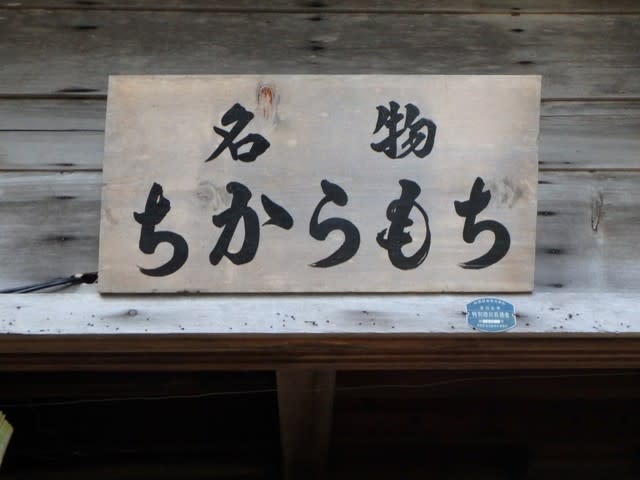 名物
ちからもち